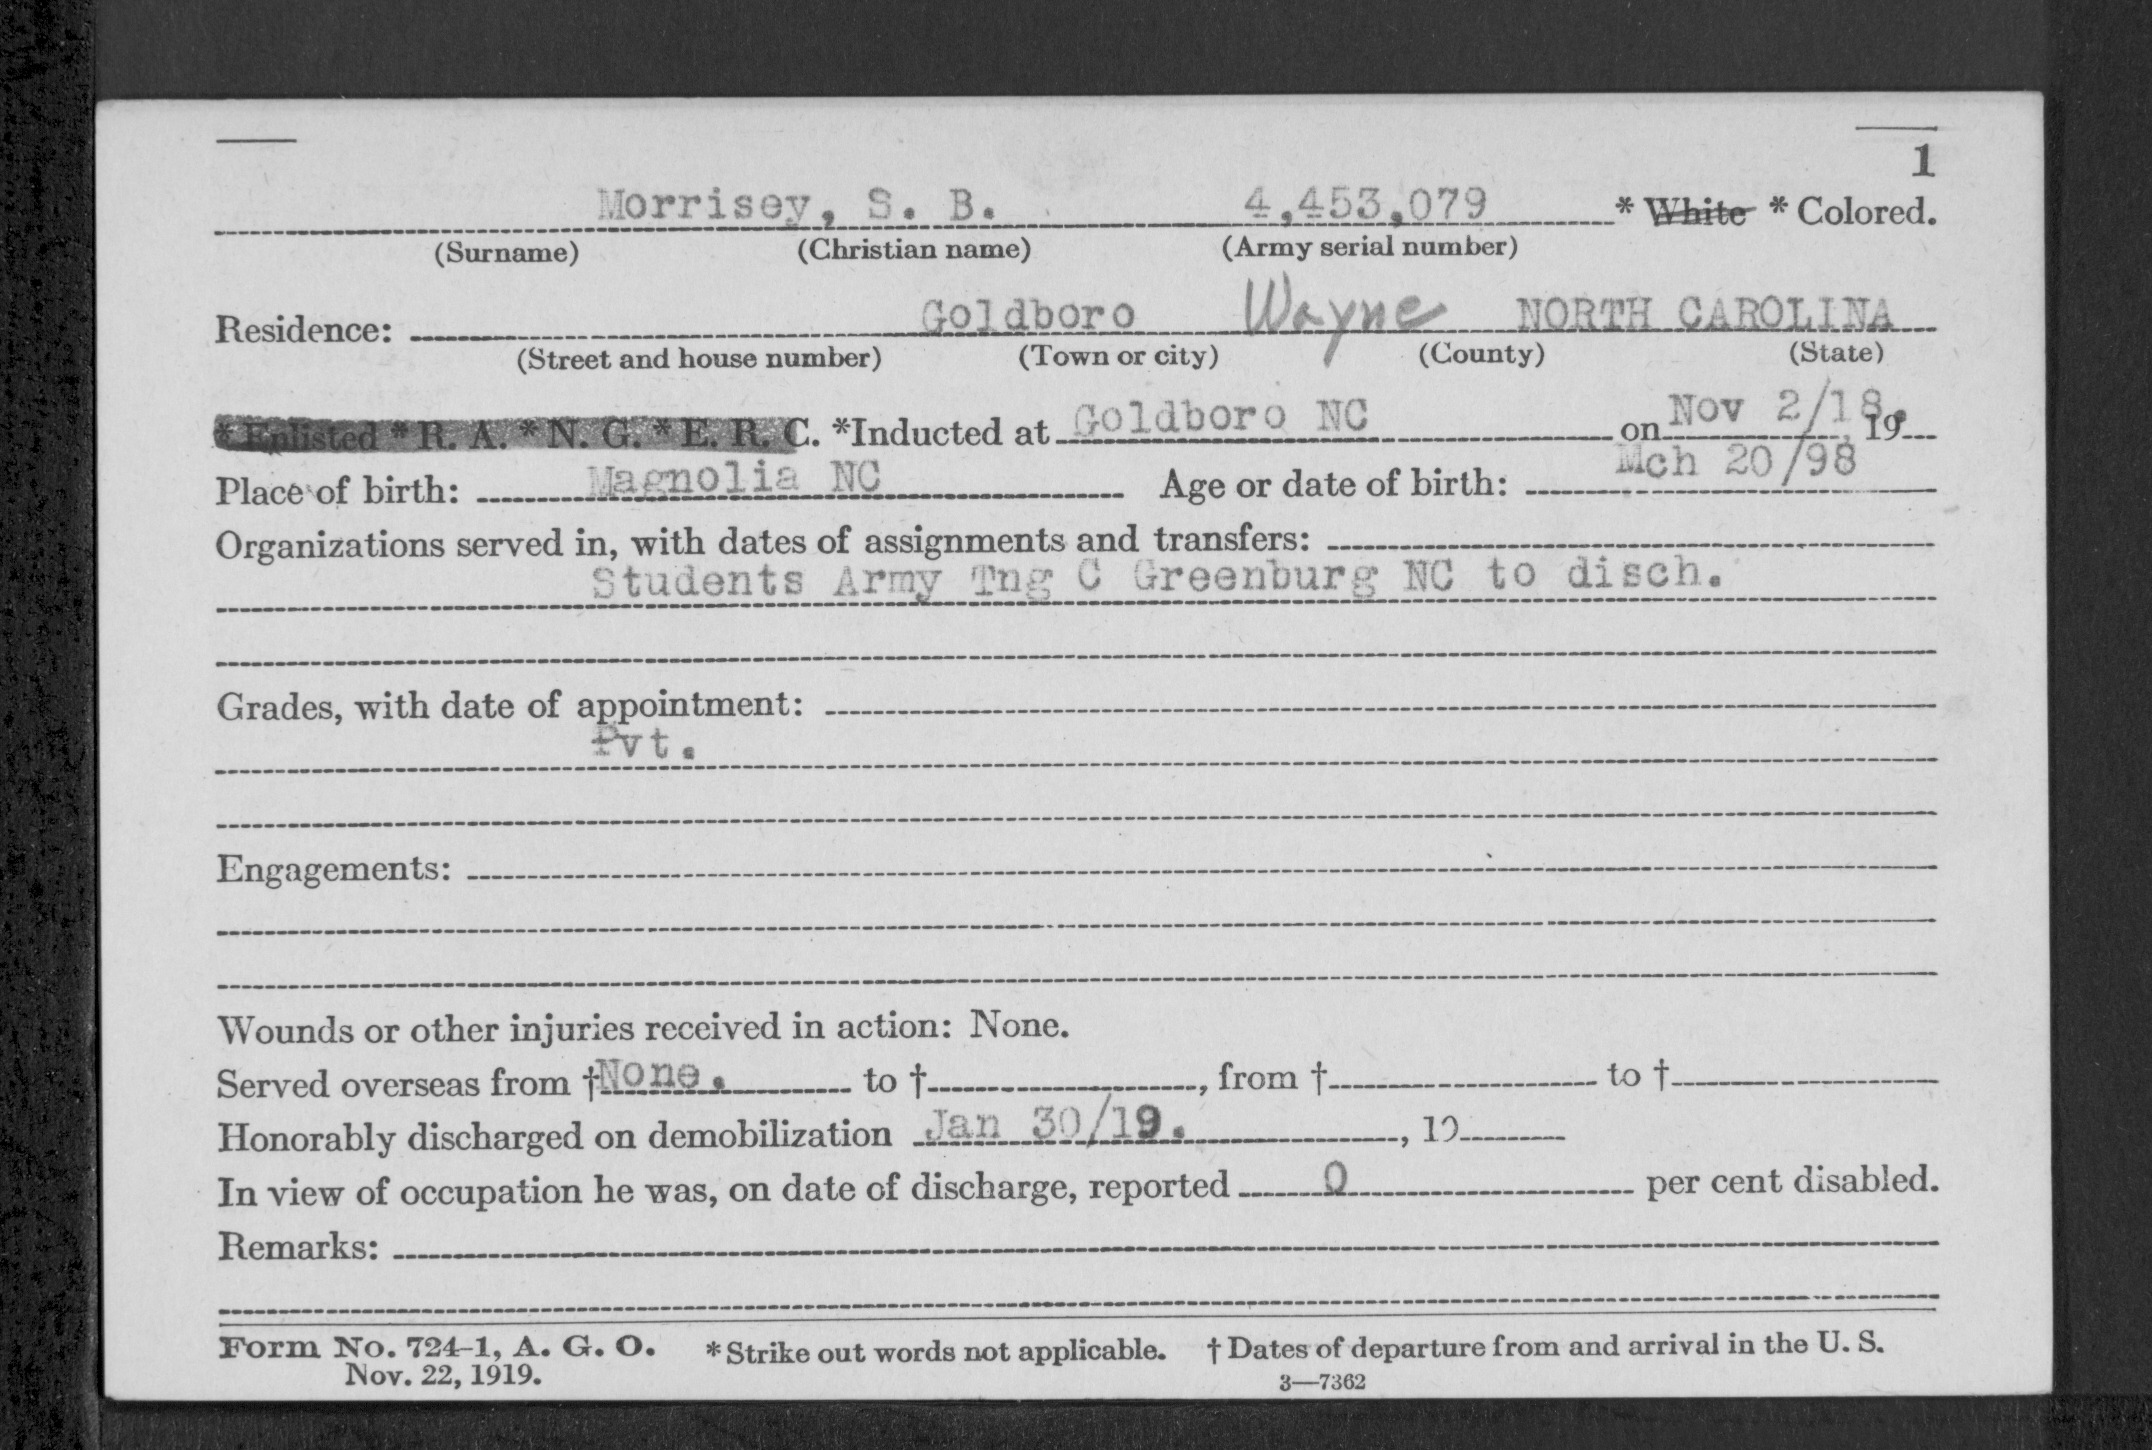 1
Morrisey, S. B. 4,453,079 * White * Colored.
(Surname) (Christian name) (Army serial number)
Residence: Goldboro Wayne NORTH CAROLINA
(Street and house number) (Town or city) (County) (State)
* Enlisted * R. A. * N. G. * E. R. C. *Inducted at Goldboro NC on Nov 2/18. 19
Place of birth: Magnolia NC Age or date of birth: Mch 20/98
Organizations served in, with dates of assignments and transfers:
Students Army Tng C Greenburg NC to disch.
Grades, with date of appointment:
Pvt.
Engagements:
Wounds or other injuries received in action: None.
Served overseas from † None. to †, from † to †
Honorably discharged on demobilization Jan 30/19. , 19
In view of occupation he was, on date of discharge, reported 0 per cent disabled.
Remarks:
Form No. 724-1, A. G. O. * Strike out words not applicable. † Dates of departure from and arrival in the U. S.
Nov. 22, 1919. 3—7362